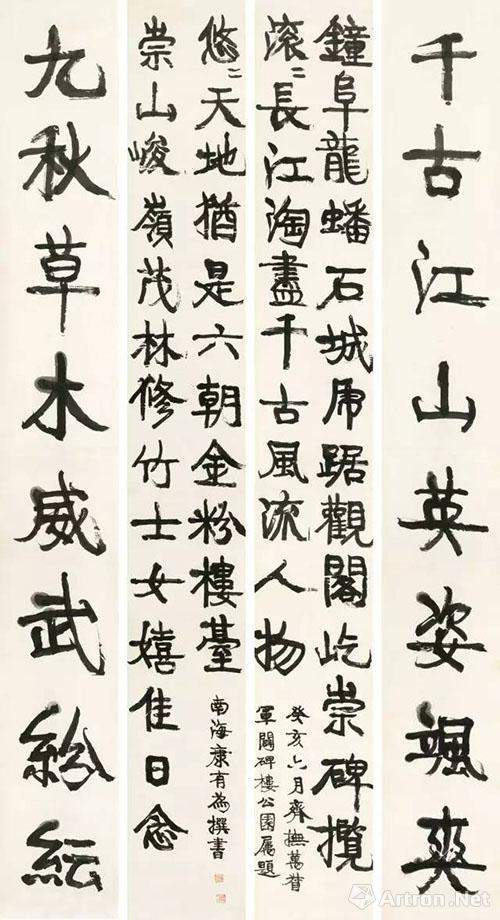 千古江山英姿颯爽
鐘阜龍蟠石城虎踞觀閣屹崇碑攬
滚〻長江淘盡千古風流人物
癸亥六月齊撫萬督
軍閱碑樓公園屬題
悠〻天地猶是六朝金粉樓臺
崇山峻嶺茂林修竹士女嬉佳日念
南海康有為撰書
九秋草木威武紛紜
Artron.Net